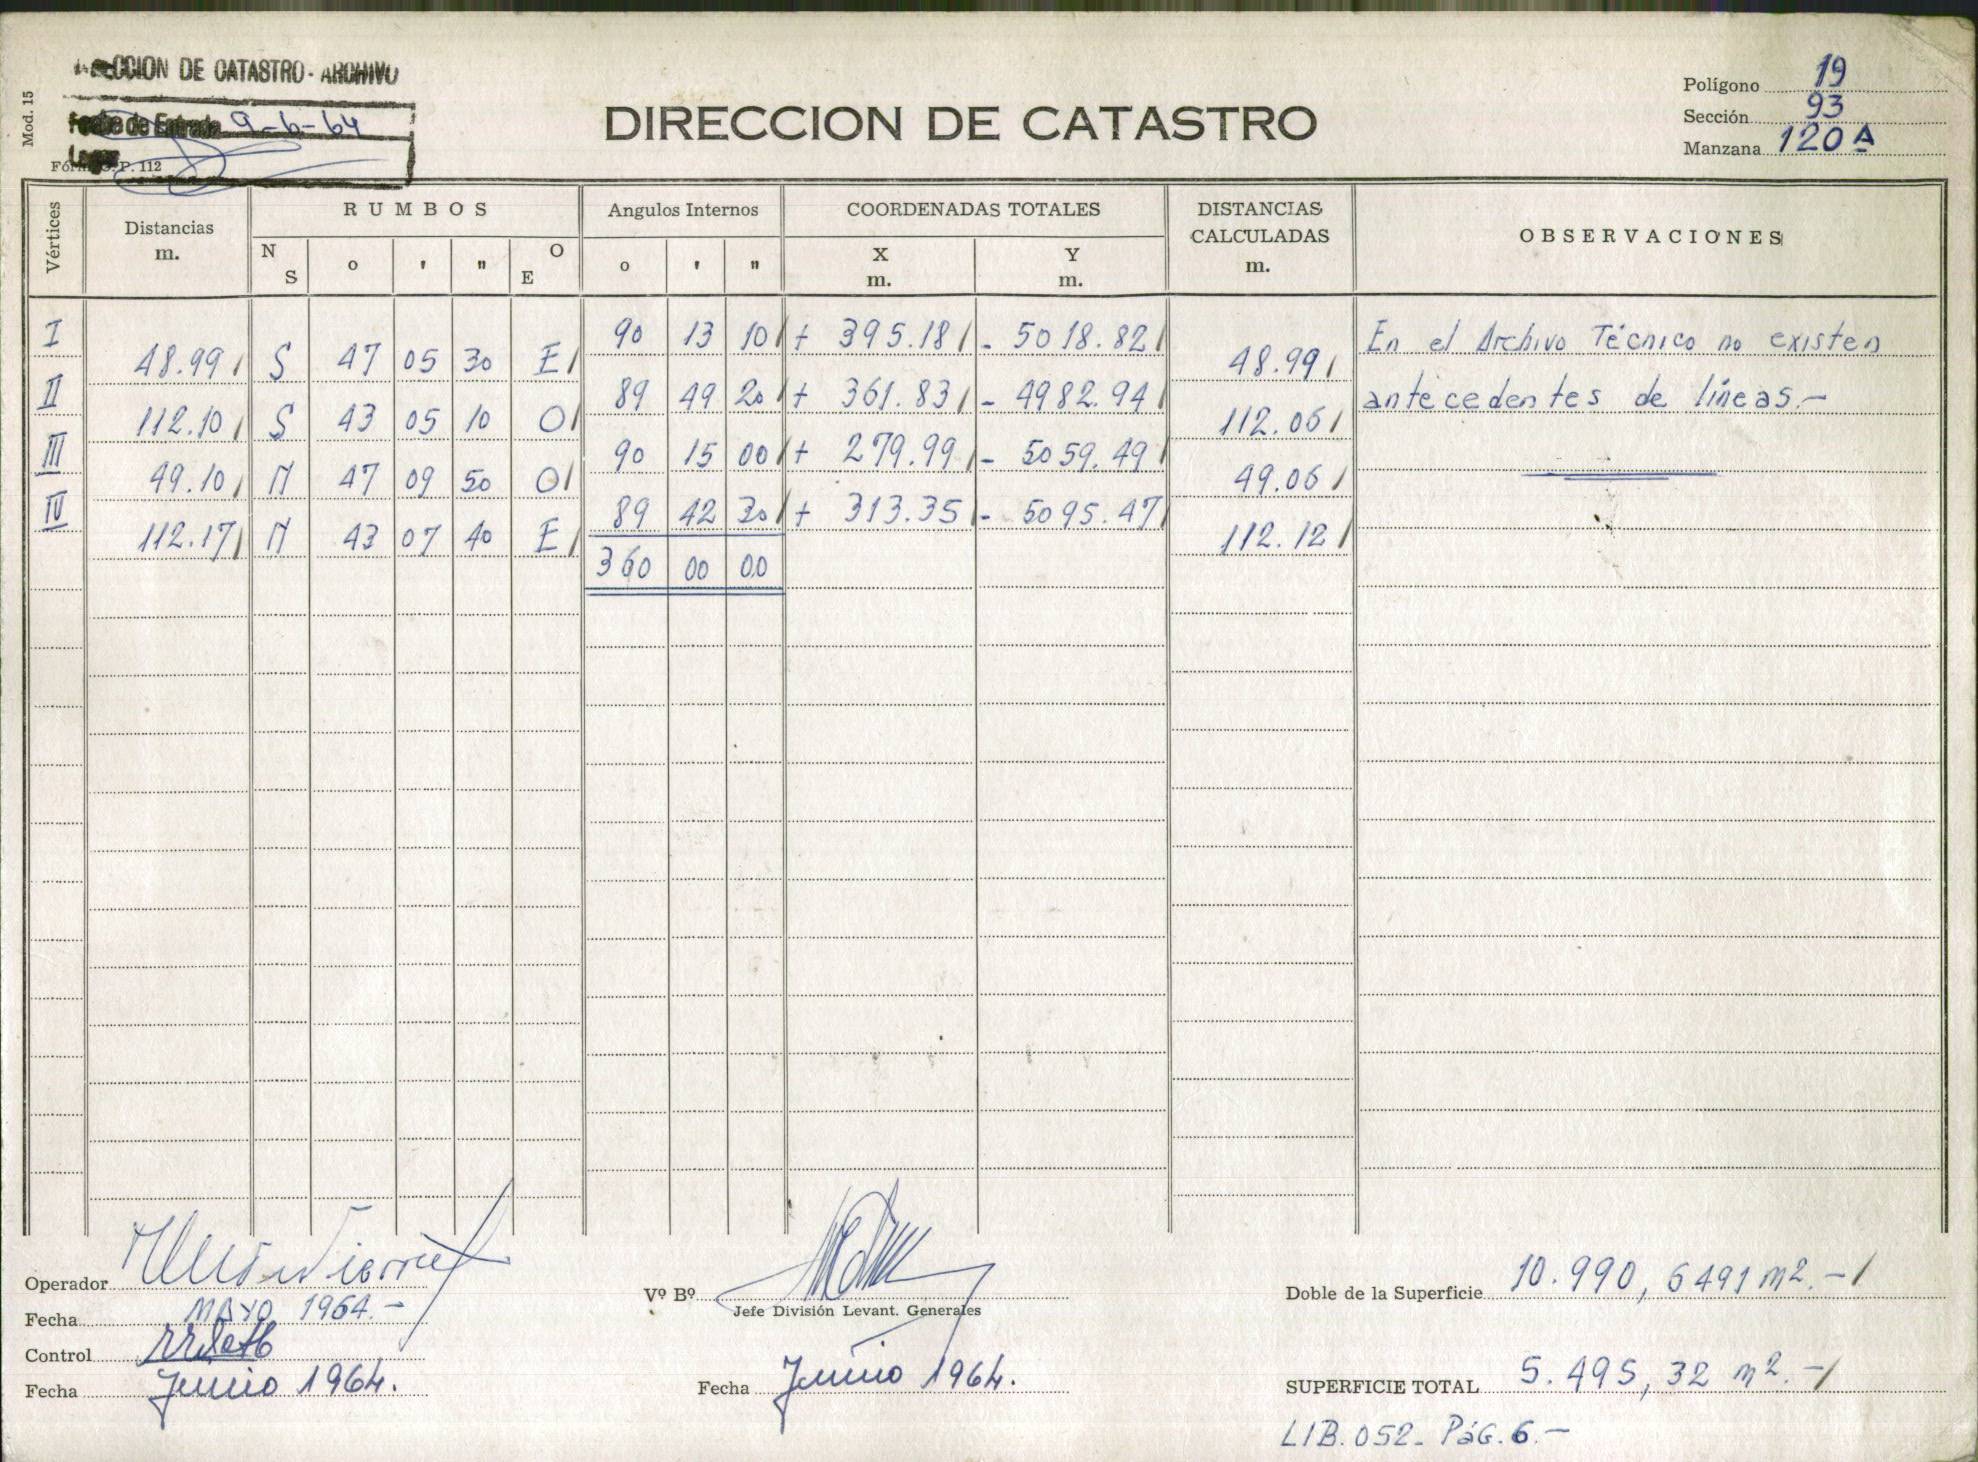 DIRECCION DE CATASTRO - ARCHIVO
Fecha de Entrada 9-6-64
Mod. 15
DIRECCION DE CATASTRO
Polígono 19
Sección 93
Manzana 120 A
Vértices
Distancias
m.
RUMBOS
N S
o ' "
O E
Angulos Internos
o ' "
COORDENADAS TOTALES
X
m.
Y
m.
DISTANCIAS
CALCULADAS
m.
OBSERVACIONES
I 90 13 10 + 395.18 - 5018.82
48.99 S 47 05 30 E 48.99
II 89 49 20 + 361.83 - 4982.94
112.10 S 43 05 10 O 112.06
III 90 15 00 + 279.99 - 5059.49
49.10 N 47 09 50 O 49.06
IV 89 42 30 + 313.35 - 5095.47
112.17 N 43 07 40 E 112.12
360 00 00
En el Archivo Técnico no existen
antecedentes de líneas.-
Operador
Fecha MAYO 1964.-
Control
Fecha Junio 1964.
Vº Bº
Jefe División Levant. Generales
Fecha Junio 1964.
Doble de la Superficie 10.990,6491 m2.-
SUPERFICIE TOTAL 5.495,32 m2.-
LIB. 052- Pág. 6.-